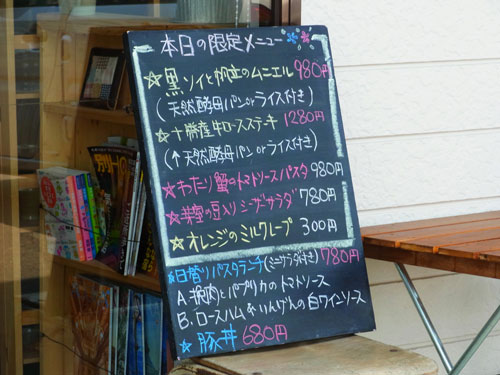 本日の限定メニュー
☆黒ソイと帆立のムニエル 980円
(天然酵母パンorライス付き)
☆十勝産牛ロースステーキ 1280円
(↑天然酵母パンorライス付き)
★わたり蟹のトマトソースパスタ 980円
の豆入りシーザーサラダ 780円
☆オレンジのミルクレープ 300円
★日替りパスタランチ(ミニサラダ付き)780円
A.豚肉とパプリカのトマトソース
B.ロースハム&いんげんの白ワインソース
★豚丼 680円